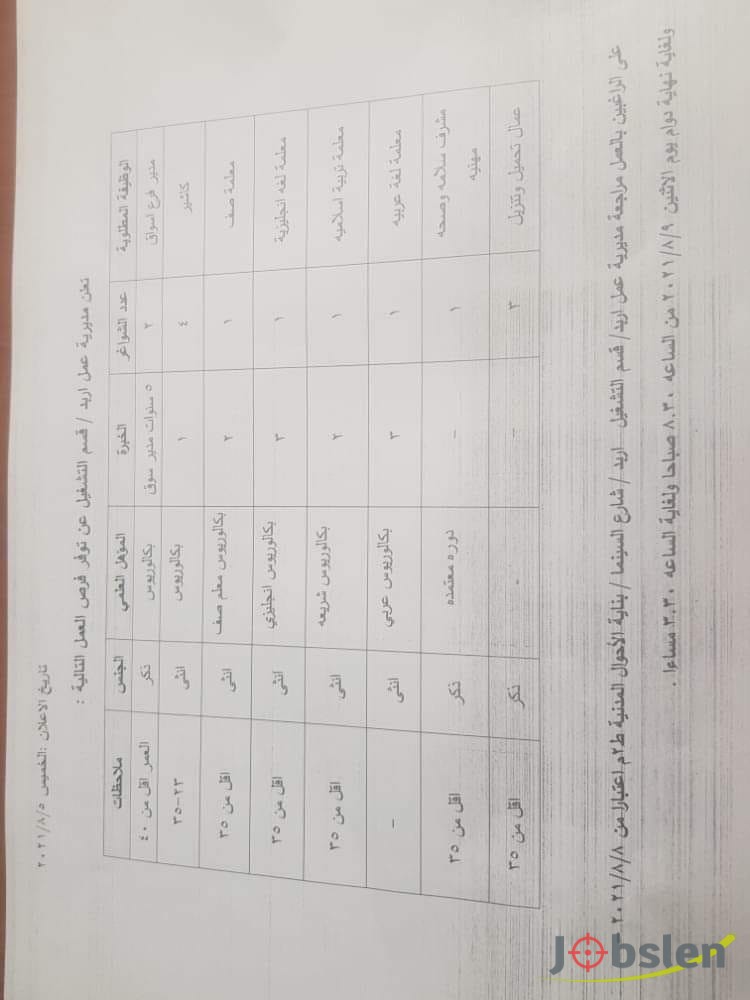 تاريخ الاعلان :الخميس ٢٠٢١/٨/٥
تعلن مديرية عمل اربد / قسم التشغيل عن توفر فرص العمل التالية :
الوظيفة المطلوبة عدد الشواغر الخبرة المؤهل العلمي الجنس ملاحظات
مدير فرع اسواق ٢ ٥ سنوات مدير سوق بكالوريوس ذكر العمر اقل من ٤٠
كاشير ٤ ١ بكالوريوس انثى ٢٣-٣٥
معلمة صف ١ ٢ بكالوريوس معلم صف انثى اقل من ٣٥
معلمة لغه انجليزية ١ ٣ بكالوريوس انجليزي انثى اقل من ٣٥
معلمة تربية اسلاميه ١ ٢ بكالوريوس شريعه انثى اقل من ٣٥
معلمة لغة عربيه ١ ٣ بكالوريوس عربي انثى -
مشرف سلامه وصحه مهنيه ١ - دوره معتمده ذكر اقل من ٣٥
عمال تحميل وتنزيل ٣ - - ذكر اقل من ٣٥
على الراغبين بالعمل مراجعة مديرية عمل اربد/ قسم التشغيل اربد / شارع السينما / بناية الأحوال المدنية ط٢م اعتبارا من ٢٠٢١/٨/٨ –
ولغاية نهاية دوام يوم الاثنين ٢٠٢١/٨/٩ من الساعه ٨.٣٠ صباحا ولغاية الساعه ٣.٣٠ مساءا .
Jobslen